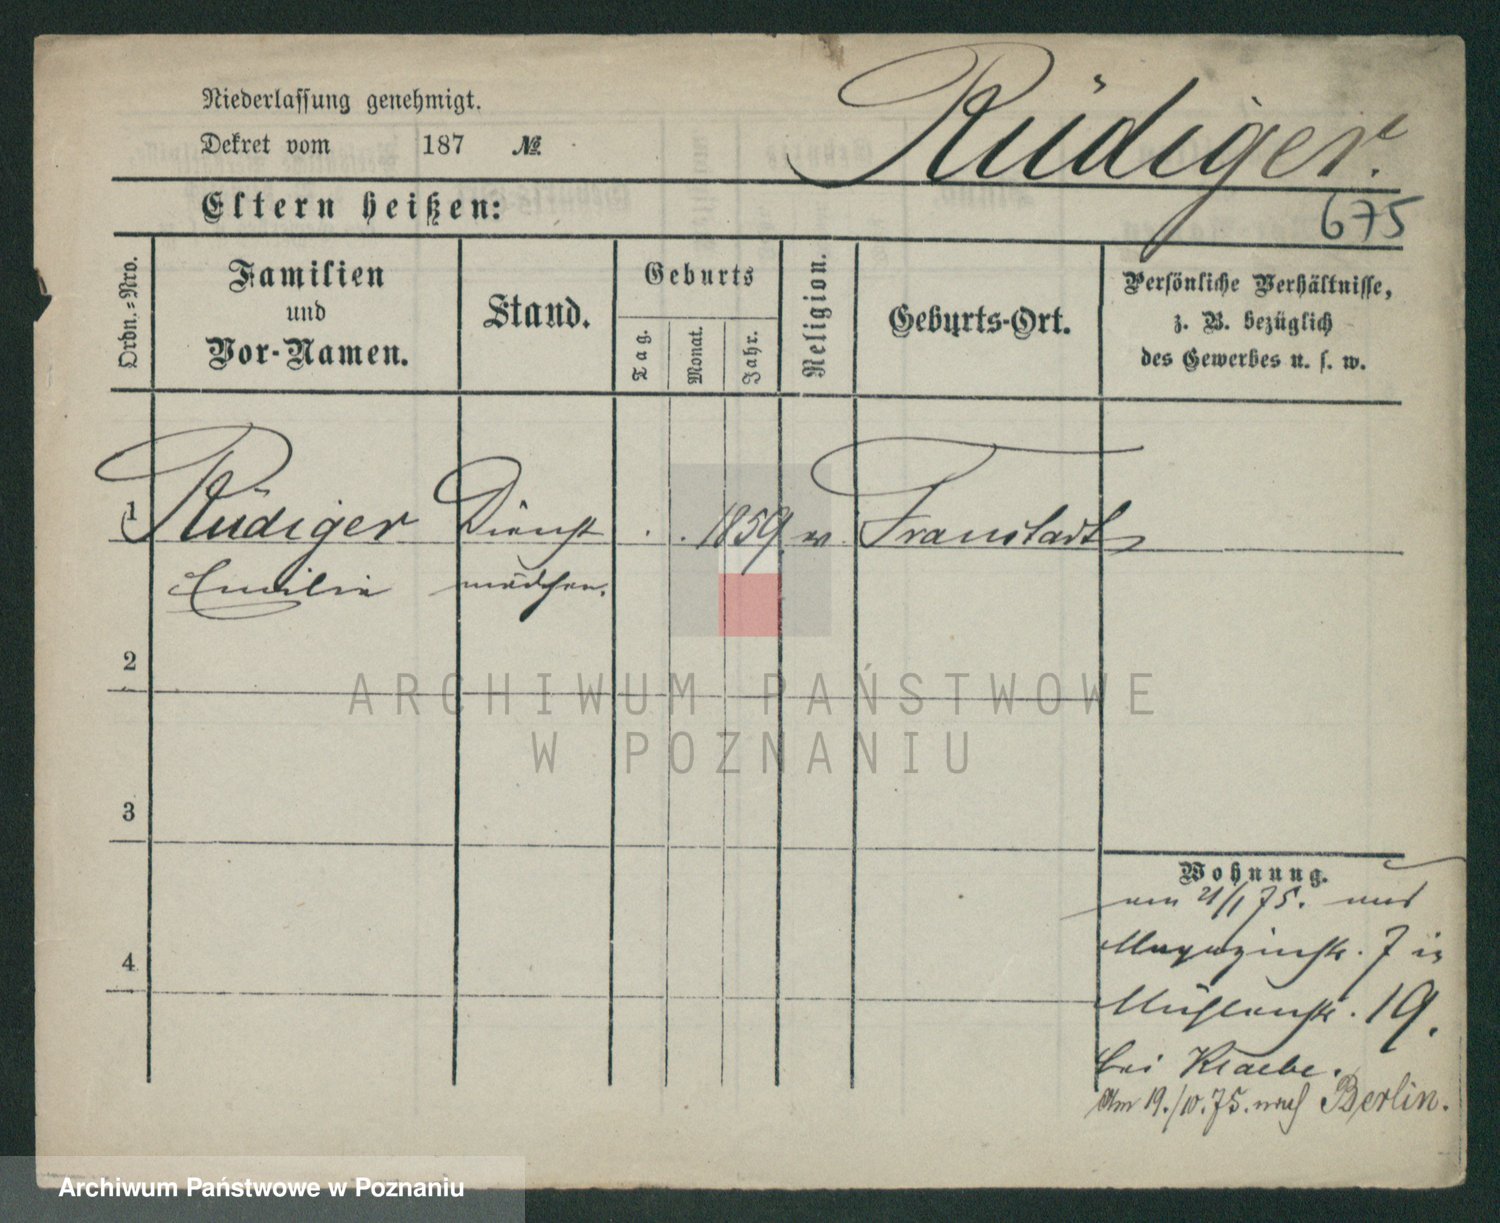 Niederlassung genehmigt.
Dekret vom 187 №
Rüdiger.
Eltern heißen:
675
Ordn.-Nro.
Familien
und
Vor-Namen.
Stand.
Geburts
Tag.
Monat.
Jahr.
Religion.
Geburts-Ort.
Persönliche Verhältnisse,
z. B. bezüglich
des Gewerbes u. s. w.
1 Rüdiger Dienst 1859. Fraustadt
Emilie mädchen.
2
ARCHIWUM PAŃSTWOWE
W POZNANIU
3
4
Wohnung.
am 21/1 75. aus
Magazinstr. 7 in
Mühlenstr. 19.
bei Klaebe.
Am 19./10. 75. nach Berlin.
Archiwum Państwowe w Poznaniu